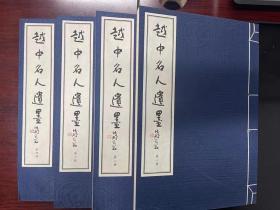 越中名人遺墨
越中名人遺墨
越中名人遺墨
越中名人遺墨